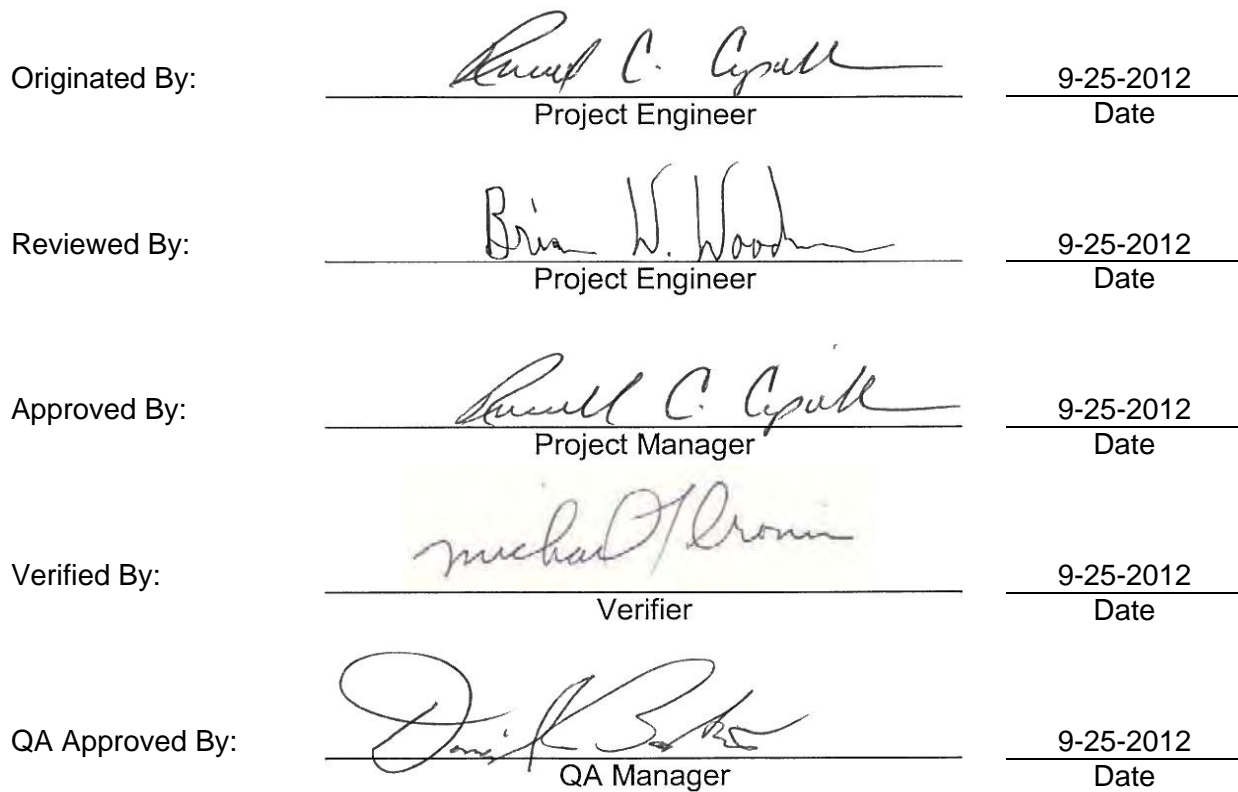 Originated By: Russell C. 9-25-2012
Project Engineer Date
Reviewed By: Brian W. 9-25-2012
Project Engineer Date
Approved By: Russell C. 9-25-2012
Project Manager Date
Verified By: 9-25-2012
Verifier Date
QA Approved By: 9-25-2012
QA Manager Date